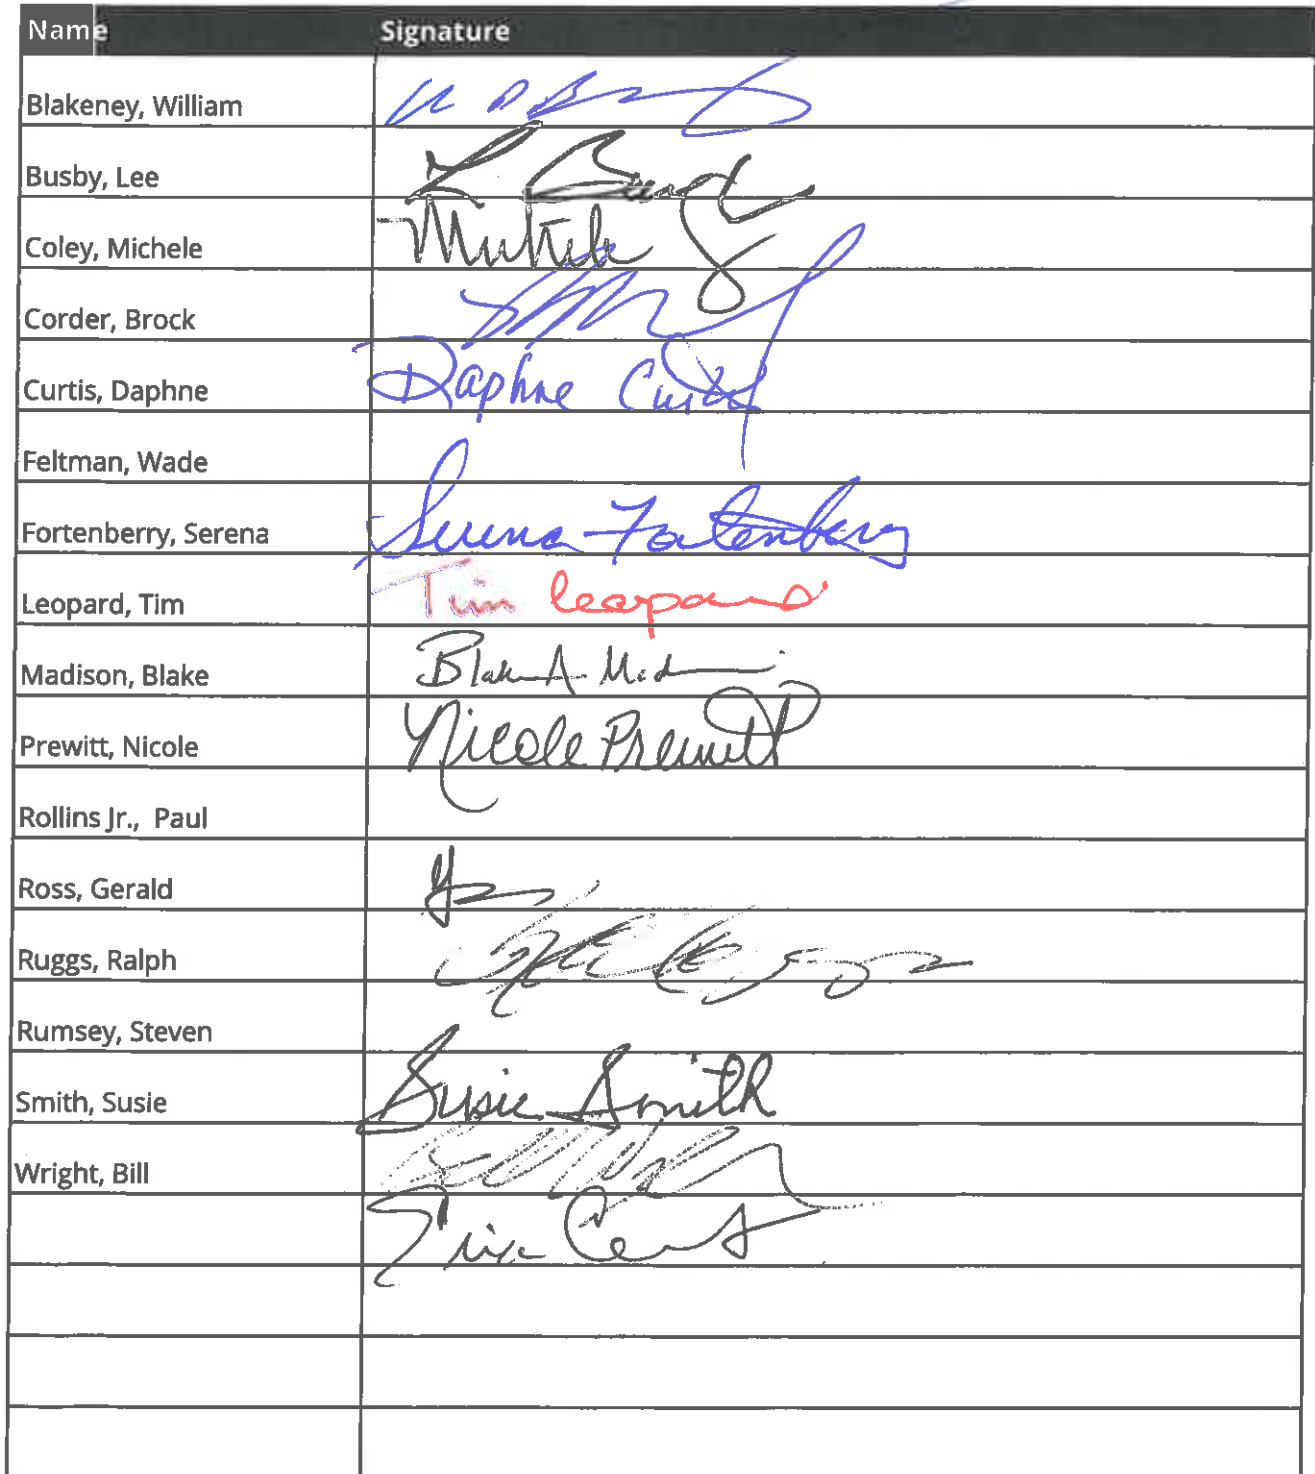 Name Signature
Blakeney, William
Busby, Lee
Coley, Michele Michele
Corder, Brock
Curtis, Daphne Daphne Curtis
Feltman, Wade
Fortenberry, Serena Serena Fortenberry
Leopard, Tim Tim leopard
Madison, Blake Blake A Mad
Prewitt, Nicole Nicole Prewitt
Rollins Jr., Paul
Ross, Gerald
Ruggs, Ralph
Rumsey, Steven
Smith, Susie Susie Smith
Wright, Bill